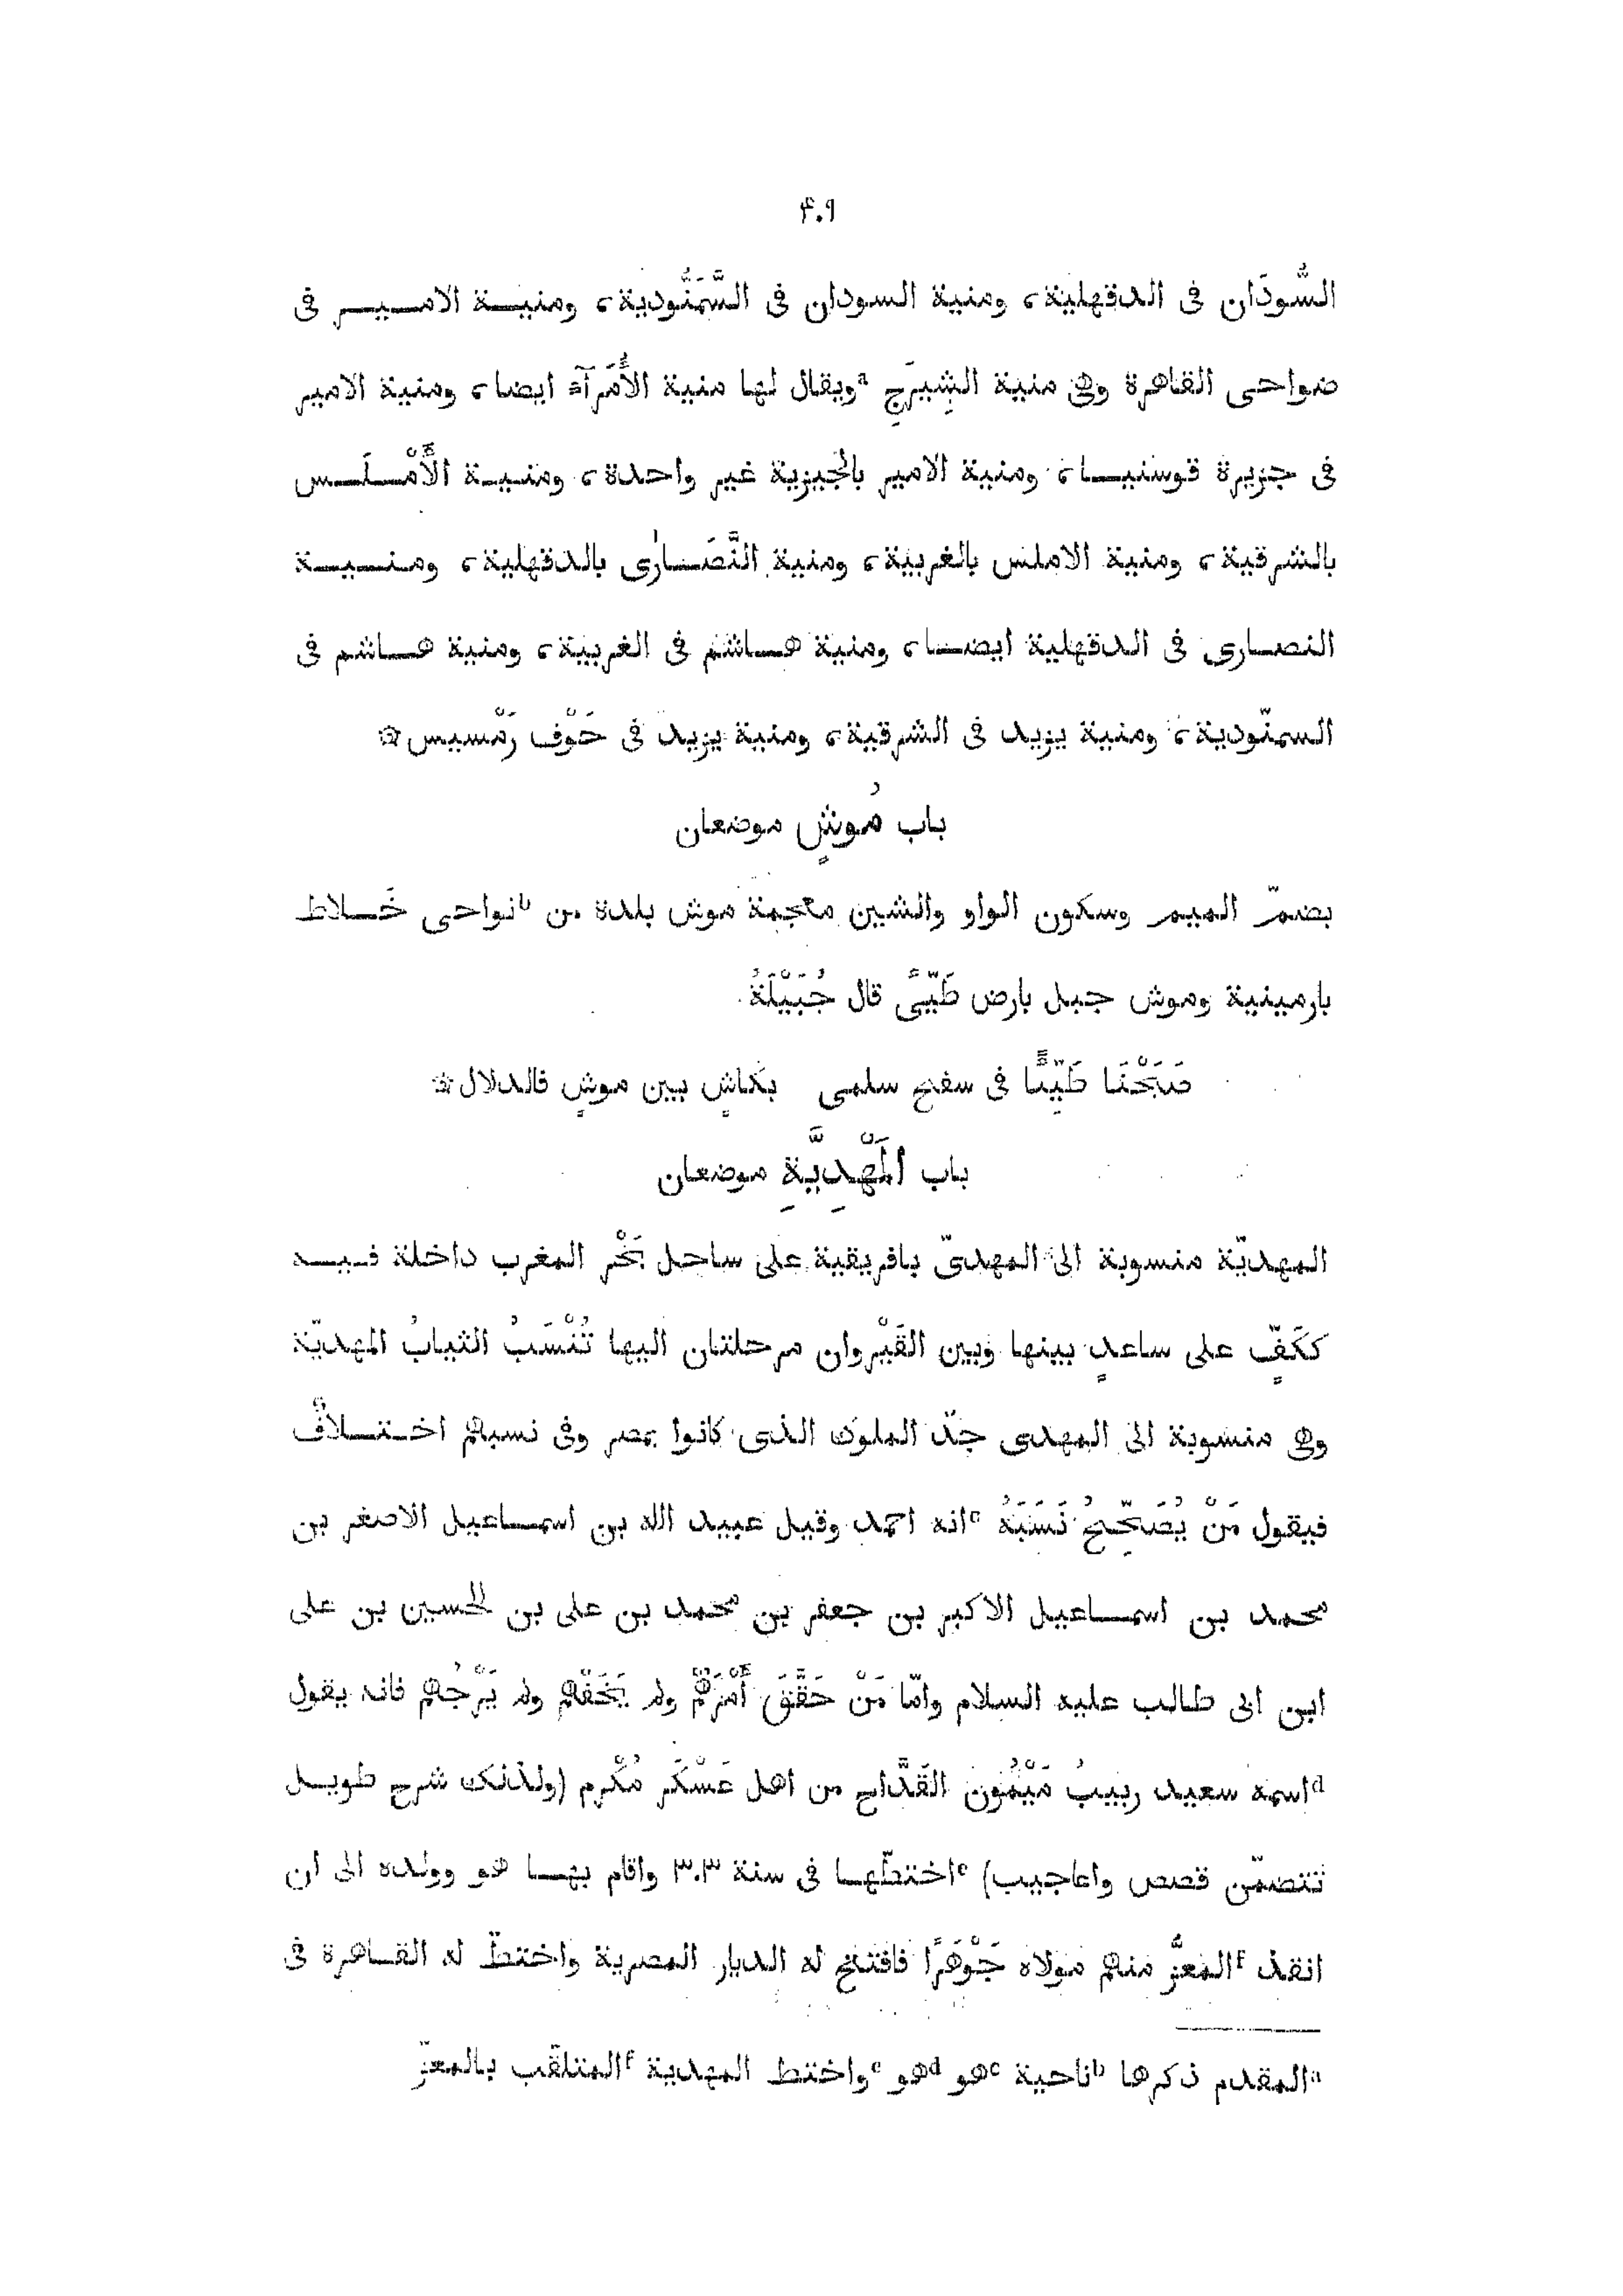 ۴۰۹
السُّودَان فى الدقهلية، ومنية السودان فى السَّمَنُّودية، ومنيـة الامـيـر فى
ضواحى القاهرة وهى منية الشِيرَجِ aويقال لها منية الأُمَرآء ايضا، ومنية الامير
فى جزيرة قوسنيـا، ومنية الامير بالجيزية غير واحدة، ومنيـة الأَمْـلَـس
بالشرقية، ومنية الاملس بالغربية، ومنية النَّصَـارَى بالدقهلية، ومنـيـة
النصـارى فى الدقهلية ايضـا، ومنية هـاشم فى الغربية، ومنية هـاشم فى
السمنّودية، ومنية يزيد فى الشرقية، ومنية يزيد فى حَوْف رَمْسيس☆
باب مُوشٍ موضعان
بضمّ الميم وسكون الواو والشين معجمة موش بلدة من bنواحى خَـلاط
بارمينية وموش جبل بارض طَيِّىً قال جُبَيْلَةُ
صَبَحْنَا طَيِّئًا فى سفح سلمى بكاسٍ بين موشٍ فالدلال☆
باب المَهْدِيَّةِ موضعان
المهديّة منسوبة الى المهدىّ بافريقية على ساحل بَحْر المغرب داخلة فـيـه
ككَفٍّ على ساعدٍ بينها وبين القَيْروان مرحلتان اليها تُنْسَبُ الثيابُ المهديّة
وهى منسوبة الى المهدى جدّ الملوك الذى كانوا بمصر وفى نسبهم اخـتـلافٌ
فيقول مَنْ يُصَحِّحُ نَسَبَهُ cانه احمد وقيل عبيد الله بن اسمـاعيل الاصغر بن
محمد بن اسمـاعيل الاكبر بن جعفر بن محمد بن على بن الحسين بن على
ابن ابى طالب عليه السلام وامّا مَنْ حَقَّقَ أَمْرَهُمْ ولم يَخَفْهُم ولم يَرْجُهُم فانه يقول
dاسمه سعيد ربيبُ مَيْمُون القَدَّاح من اهل عَسْكَر مُكْرم (ولذلك شرح طويـل
تتضمّن قصص واعاجيب) eاختطّهـا فى سنة ٣٠٣ واقام بهـا هو وولده الى ان
انفذ fالمعزُّ منهم مولاه جَوْهَرًا فافتتح له الديار المصرية واختطّ له القـاهرة فى
aالمقدم ذكرها bناحية cهو dهو eواختط المهدية fالمتلقّب بالمعزّ